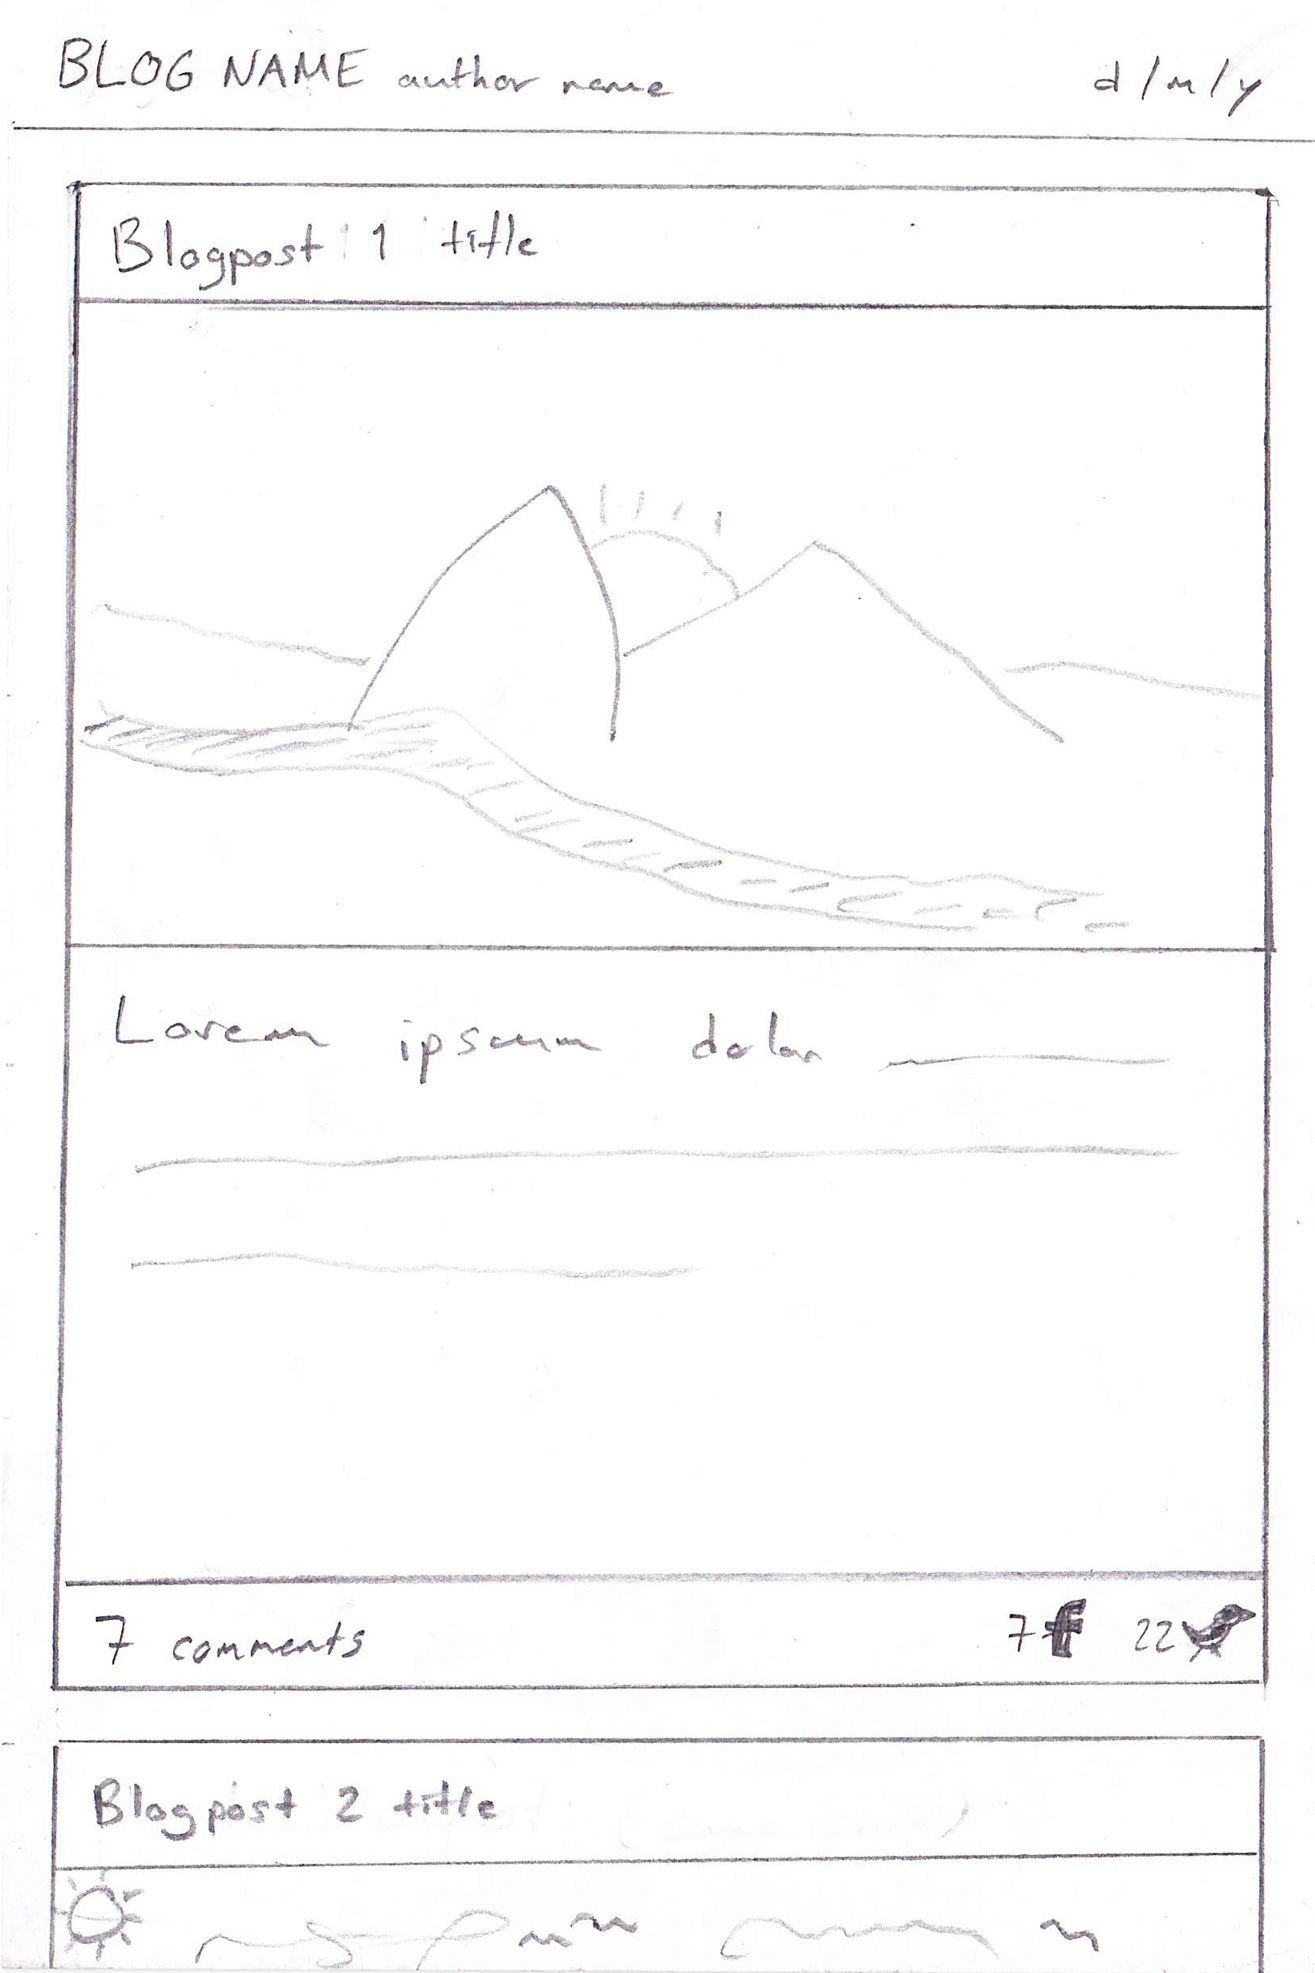 BLOG NAME author name d/m/y
Blogpost 1 title
Lorem ipsum dolor
7 comments 7 f 22
Blogpost 2 title